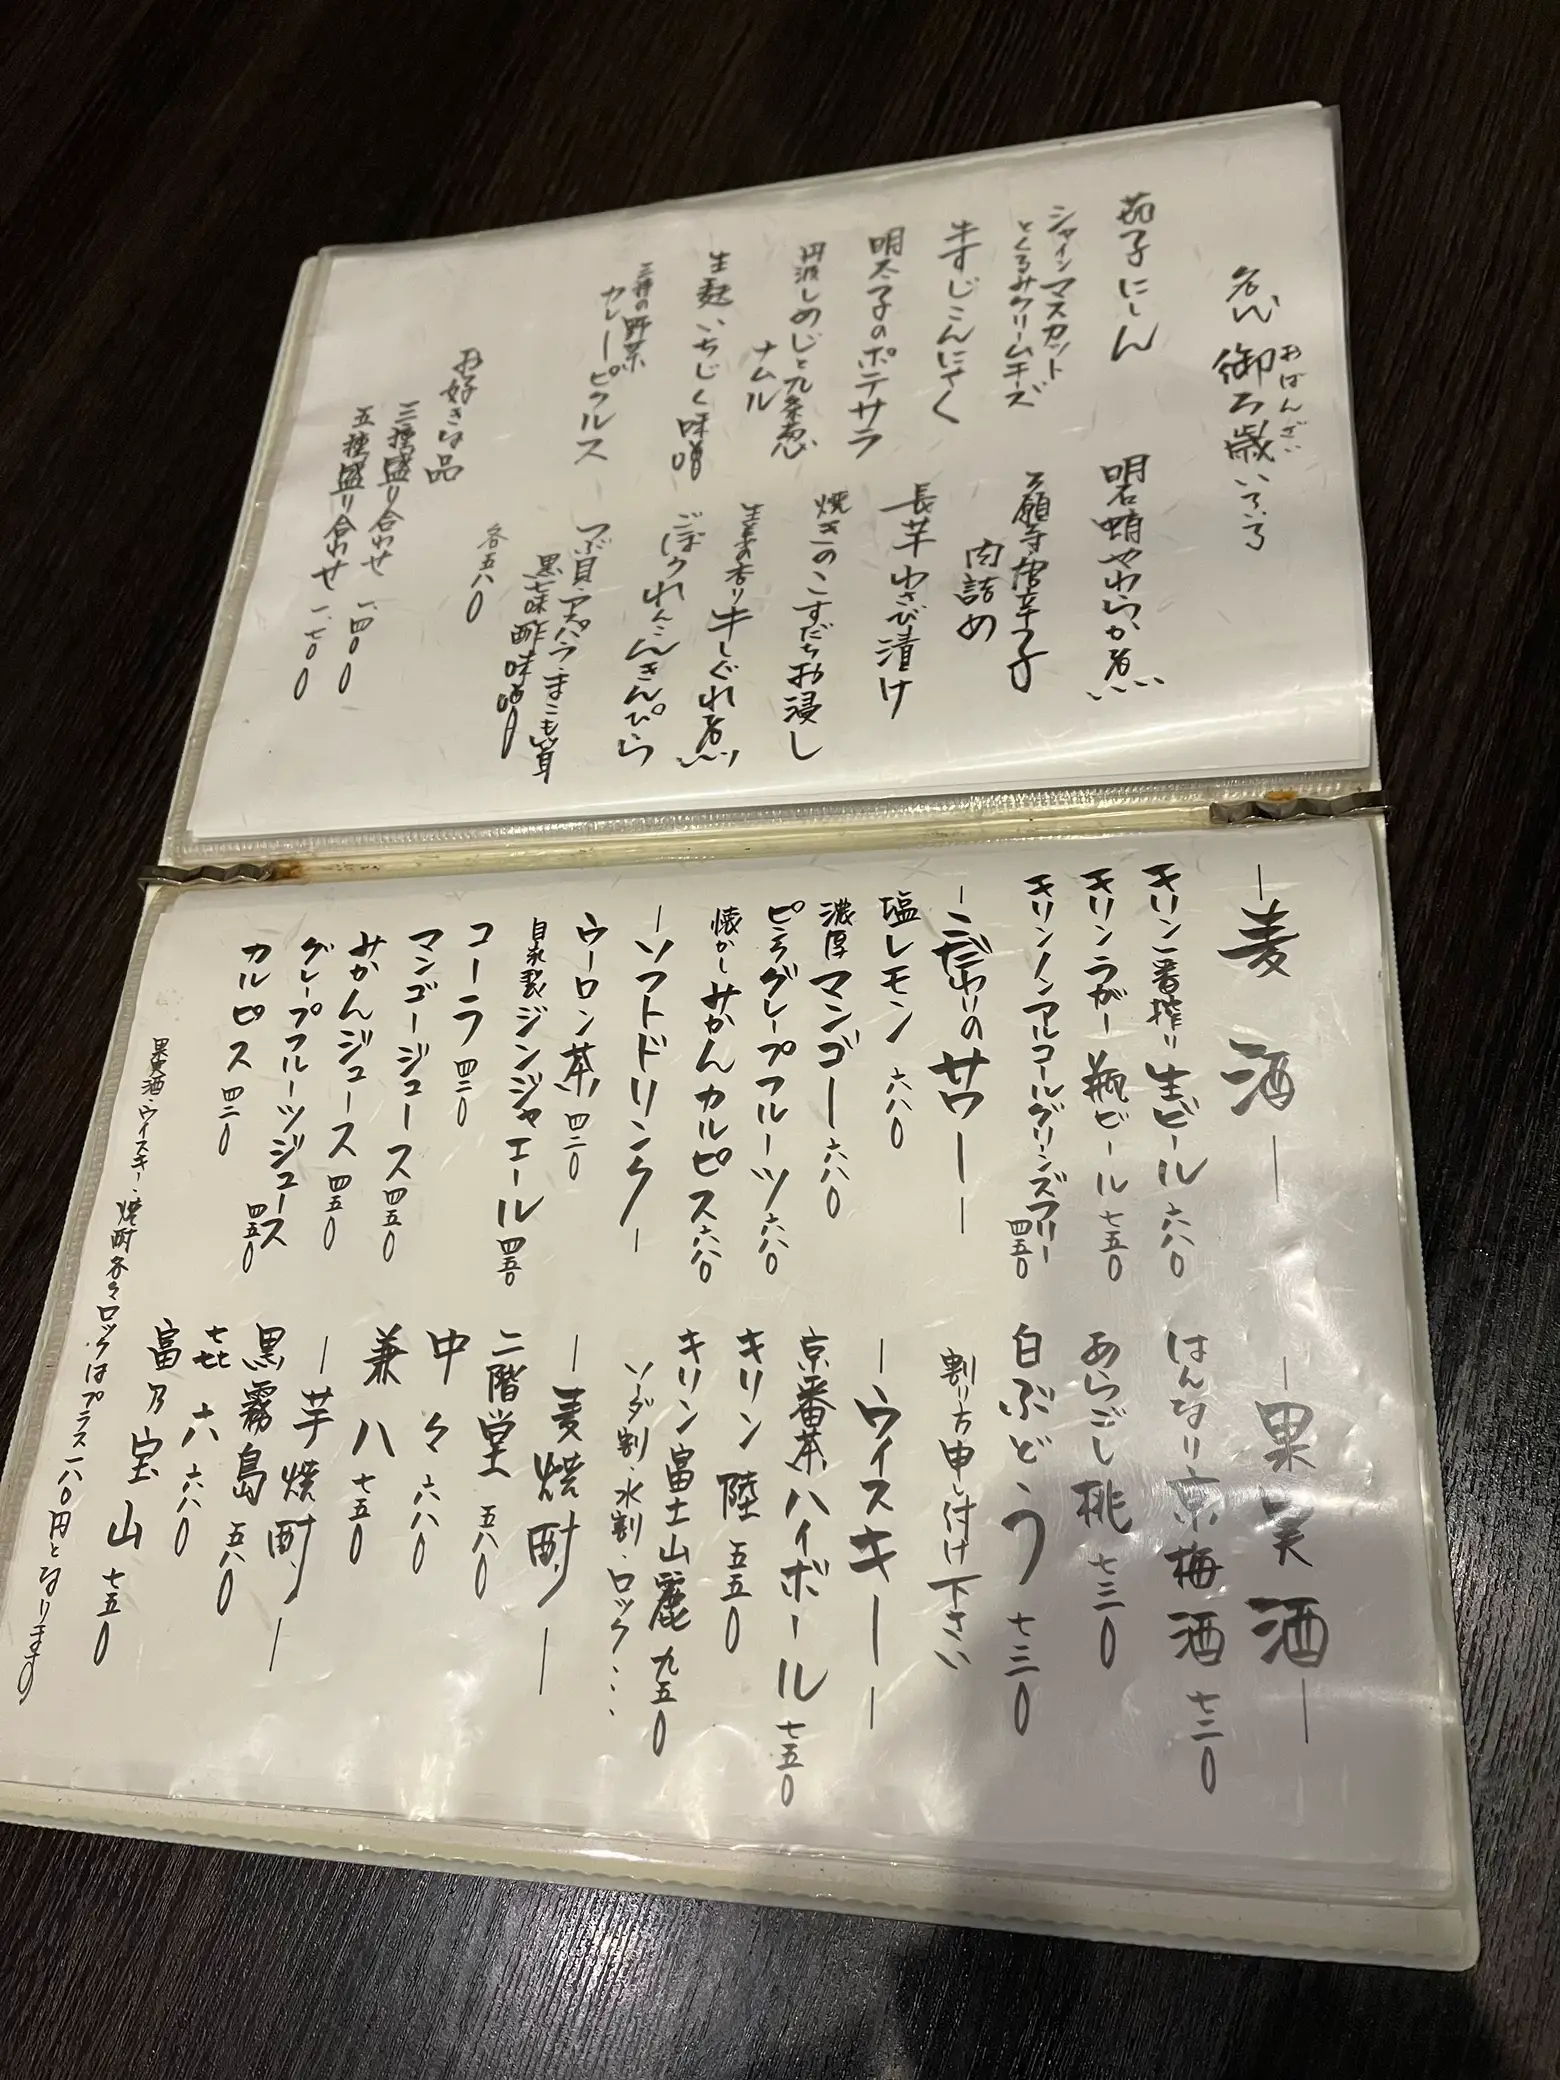 御万歳いろいろ
おばんざい
茄子にしん
シャインマスカット
とくるみクリームチーズ
牛すじこんにゃく
明太子のポテサラ
丹波しめじと九条葱
ナムル
生麩いちじく味噌
三種の野菜
カレーピクルス
明石蛸やわらか煮
万願寺唐辛子
肉詰め
長芋わさび漬け
焼きのこすだちお浸し
生姜の香り牛しぐれ煮
ごぼうれんこんきんぴら
つぶ貝・アスパラ・まこも茸
黒七味酢味噌
各五八〇
お好きな品
三種盛り合わせ 一、四〇〇
五種盛り合わせ 一、七〇〇
―麦酒―
キリン一番搾り生ビール 六八〇
キリンラガー瓶ビール 七五〇
キリンノンアルコールグリーンズフリー 四五〇
―こだわりのサワー―
塩レモン 六八〇
濃厚マンゴー 六八〇
ピンクグレープフルーツ 六八〇
懐かしみかんカルピス 六八〇
―ソフトドリンク―
ウーロン茶 四二〇
自家製ジンジャエール 四五〇
コーラ 四二〇
マンゴージュース 四五〇
みかんジュース 四五〇
グレープフルーツジュース 四五〇
カルピス 四二〇
―果実酒―
はんなり京梅酒 七三〇
あらごし桃 七三〇
白ぶどう 七三〇
割り方申し付け下さい
―ウイスキー―
京番茶ハイボール 七五〇
キリン陸 五五〇
キリン富士山麓 九五〇
ソーダ割・水割・ロック…
―麦焼酎―
二階堂 五八〇
中々 六八〇
兼八 七五〇
―芋焼酎―
黒霧島 五八〇
㐂六 六八〇
富乃宝山 七五〇
果実酒・ウイスキー・焼酎各々ロックはプラス一八〇円となります。